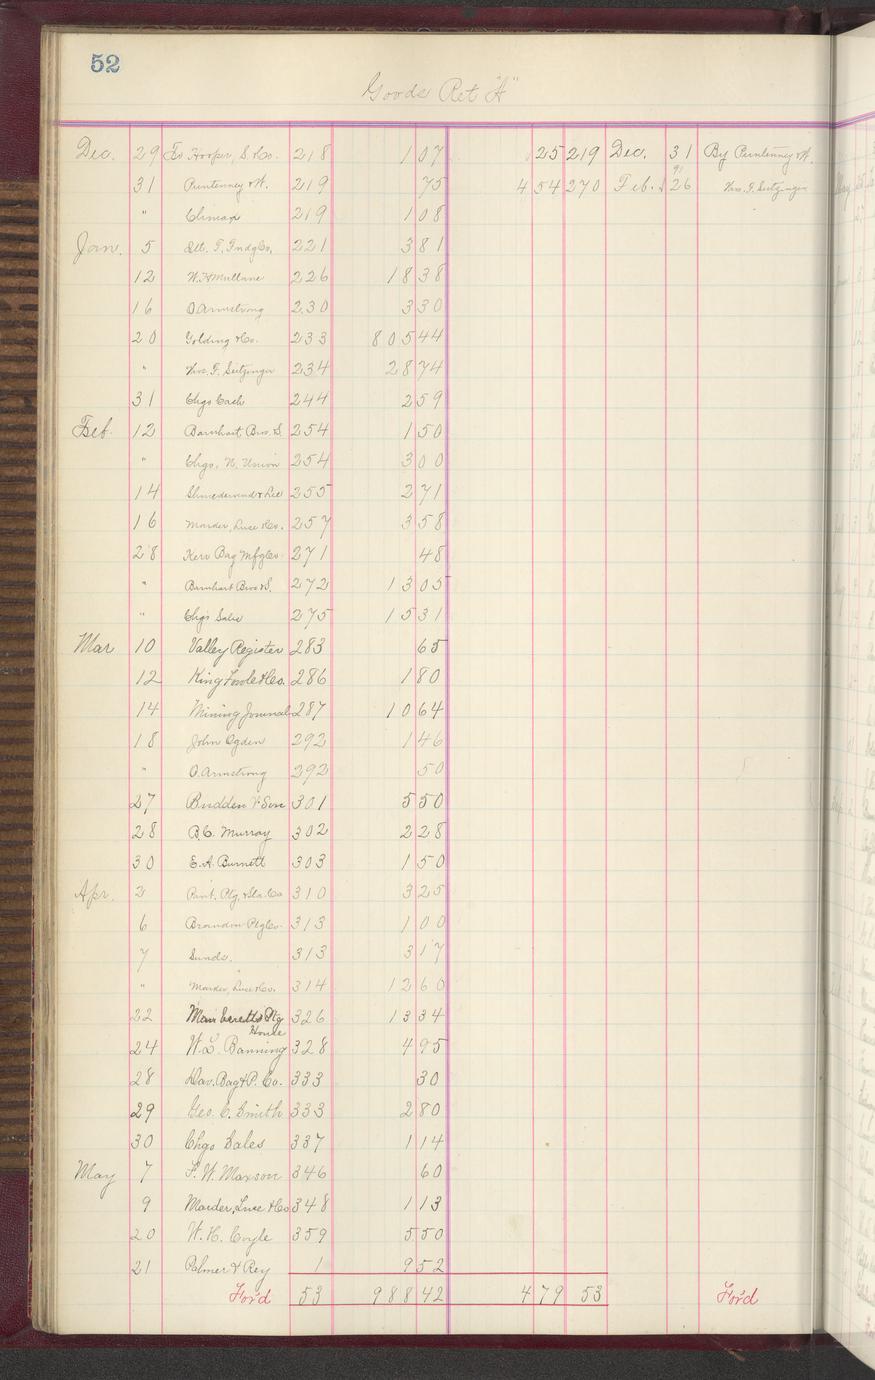 52
Goods Ret "A"
Dec. 29 To Hooper, S. & Co. 218 1 07 25 219 Dec. 31 By Puntenney & W.
31 Puntenney & W. 219 75 4 54 270 Feb. 26 Nic. F. Seitzinger
91
" Climax 219 1 08
Jan. 5 221 3 81
12 W. H. Mullane 226 18 38
16 O Armstrong 230 3 30
20 Golding & Co. 233 805 44
" Nic. F. Seitzinger 234 28 74
31 Chgs Cash 244 2 59
Feb. 12 Barnhart, Bros. S. 254 1 50
" Chgs. N. Union 254 3 00
14 & Lee 255 2 71
16 Marder, Luse & Co. 257 3 58
28 Kerr Bag Mfg Co. 271 48
" Barnhart Bros & S. 272 13 05
" Chgs Sales 275 15 31
Mar 10 Valley Register 283 65
12 King Fowle & Co. 286 1 80
14 Mining Journal 287 10 64
18 John Ogden 292 1 46
" O. Armstrong 292 50
27 Budden & Son 301 5 50
28 R. C. Murray 302 2 28
30 E. A. Burnett 303 1 50
Apr. 2 Ptg. & Sta. Co 310 3 25
6 Brandon Ptg Co. 313 1 00
7 Sunds. 313 3 17
" Marder, Luse & Co. 314 12 60
22 Ptg 326 13 34
House
24 W. L. Banning 328 4 95
28 Dav. Bag & P. Co. 333 30
29 Geo. C. Smith 333 2 80
30 Chgs Sales 337 1 14
May 7 F. W. Maxson 346 60
9 Marder, Luse & Co 348 1 13
20 W. H. Coyle 359 5 50
21 Palmer & Rey 1 9 52
For'd 53 988 42 4 79 53 For'd